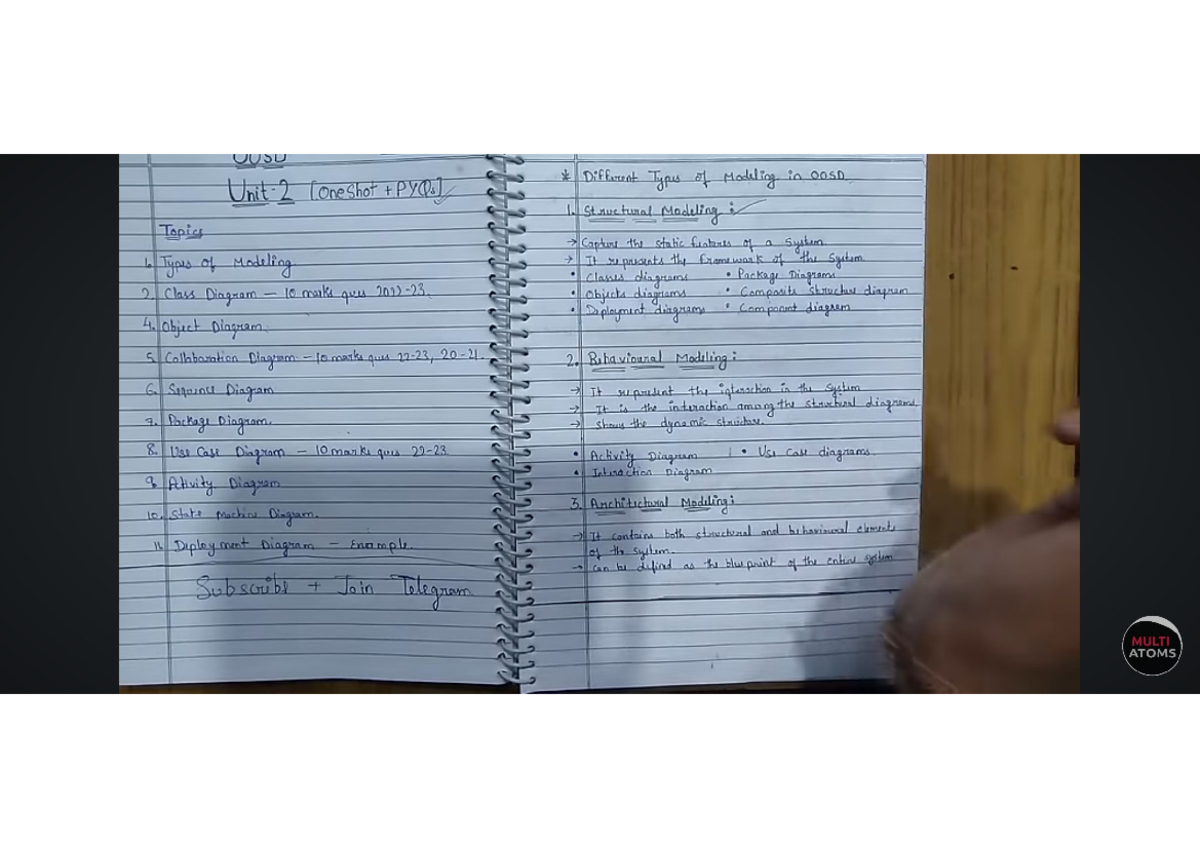 OOSD
Unit-2 [OneShot + PYQs]
Topics
1. Types of Modeling
2. Class Diagram — 10 marks ques 2022-23.
4. Object Diagram.
5. Collaboration Diagram — 10 marks ques 22-23, 20-21.
6. Sequence Diagram
7. Package Diagram.
8. Use Case Diagram — 10 marks ques 22-23.
9. Activity Diagram
10. State Machine Diagram.
11. Deployment Diagram — Example.
Subscribe + Join Telegram
* Different Types of Modeling in OOSD.
1. Structural Modeling :
→ Capture the static features of a System.
→ It represents the framework of the System
• Classes diagrams • Package Diagrams
• Objects diagrams • Composite Structure diagram
• Deployment diagrams • Component diagram
2. Behavioural Modeling :
→ It represent the interaction in the system
→ It is the interaction among the structural diagrams.
→ Shows the dynamic structure.
• Activity Diagram | • Use Case diagrams.
• Interaction Diagram
3. Architectural Modeling :
→ It contains both structural and behavioural elements
of the system.
→ Can be defined as the blueprint of the entire system
MULTI
ATOMS